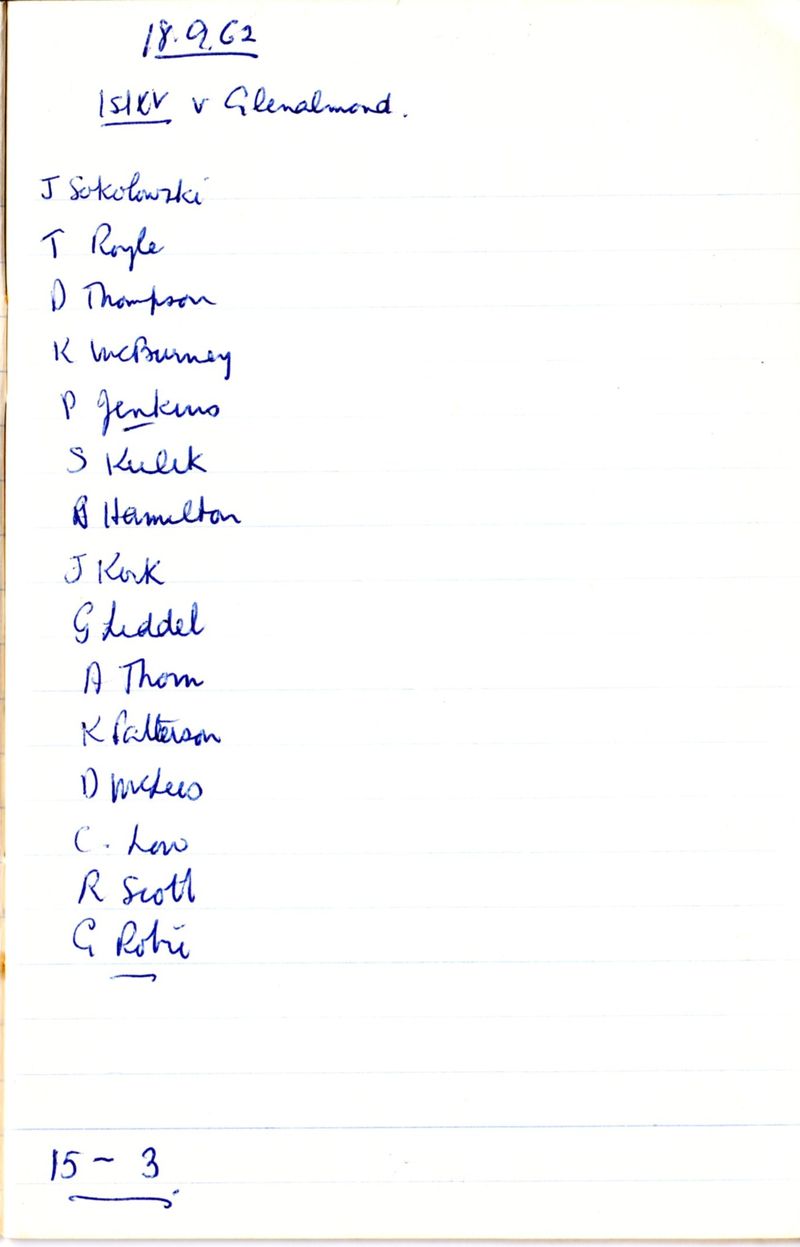 18.9.62
1st XV v Glenalmond.
J Sokolowski
T Royle
D Thompson
K McBurney
P Jenkins
S Kulik
B Hamilton
J Kirk
G Liddel
A Thom
K Patterson
D McLeo
C. Low
R Scott
G Robie
15 - 3